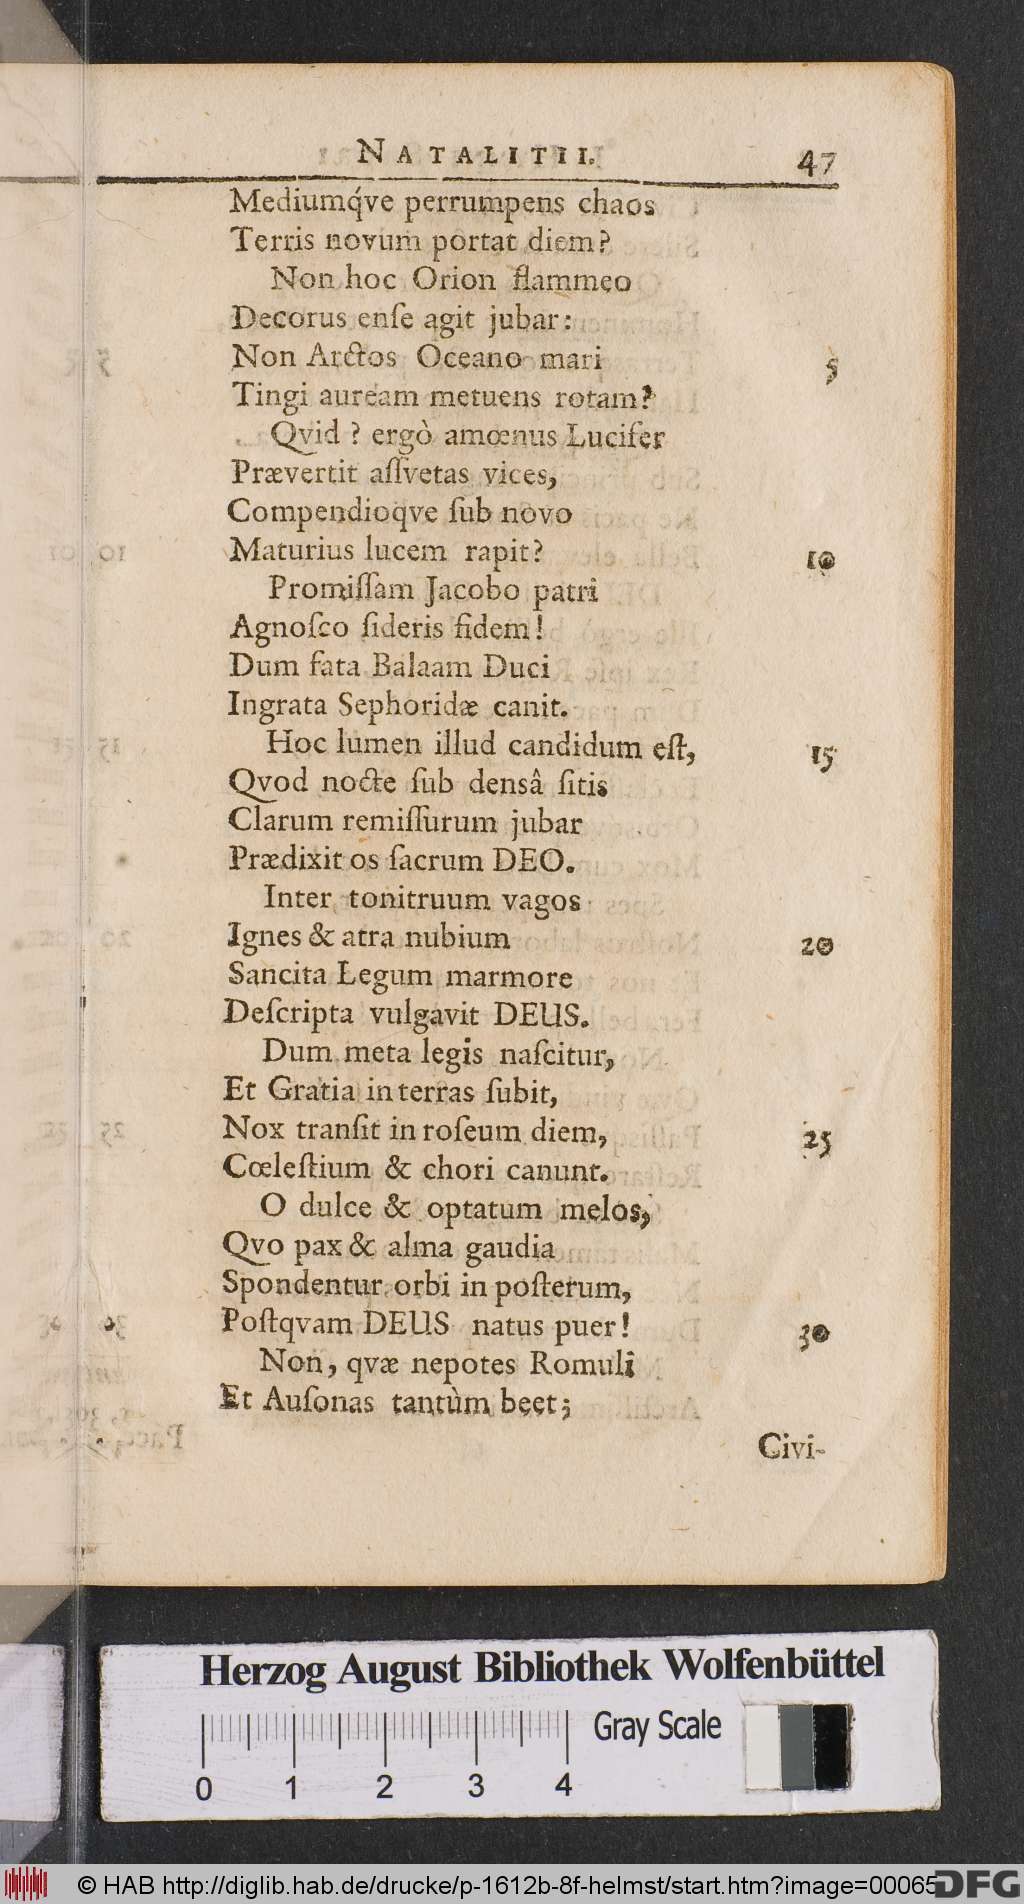 NATALITII. 47
Mediumq́ve perrumpens chaos
Terris novum portat diem?
Non hoc Orion flammeo
Decorus enſe agit jubar:
Non Arctos Oceano mari 5
Tingi auream metuens rotam?
Qvid? ergò amœnus Lucifer
Prævertit aſſvetas vices,
Compendioqve ſub novo
Maturius lucem rapit? 10
Promiſſam Jacobo patri
Agnoſco ſideris fidem!
Dum fata Balaam Duci
Ingrata Sephoridæ canit.
Hoc lumen illud candidum eſt, 15
Qvod nocte ſub densâ ſitis
Clarum remiſſurum jubar
Prædixit os ſacrum DEO.
Inter tonitruum vagos
Ignes & atra nubium 20
Sancita Legum marmore
Deſcripta vulgavit DEUS.
Dum meta legis naſcitur,
Et Gratia in terras ſubit,
Nox tranſit in roſeum diem, 25
Cœleſtium & chori canunt.
O dulce & optatum melos,
Qvo pax & alma gaudia
Spondentur orbi in poſterum,
Poſtqvam DEUS natus puer! 30
Non, qvæ nepotes Romuli
Et Auſonas tantùm beet;
Civi-
Herzog August Bibliothek Wolfenbüttel
Gray Scale
0 1 2 3 4
© HAB http://diglib.hab.de/drucke/p-1612b-8f-helmst/start.htm?image=00065
DFG